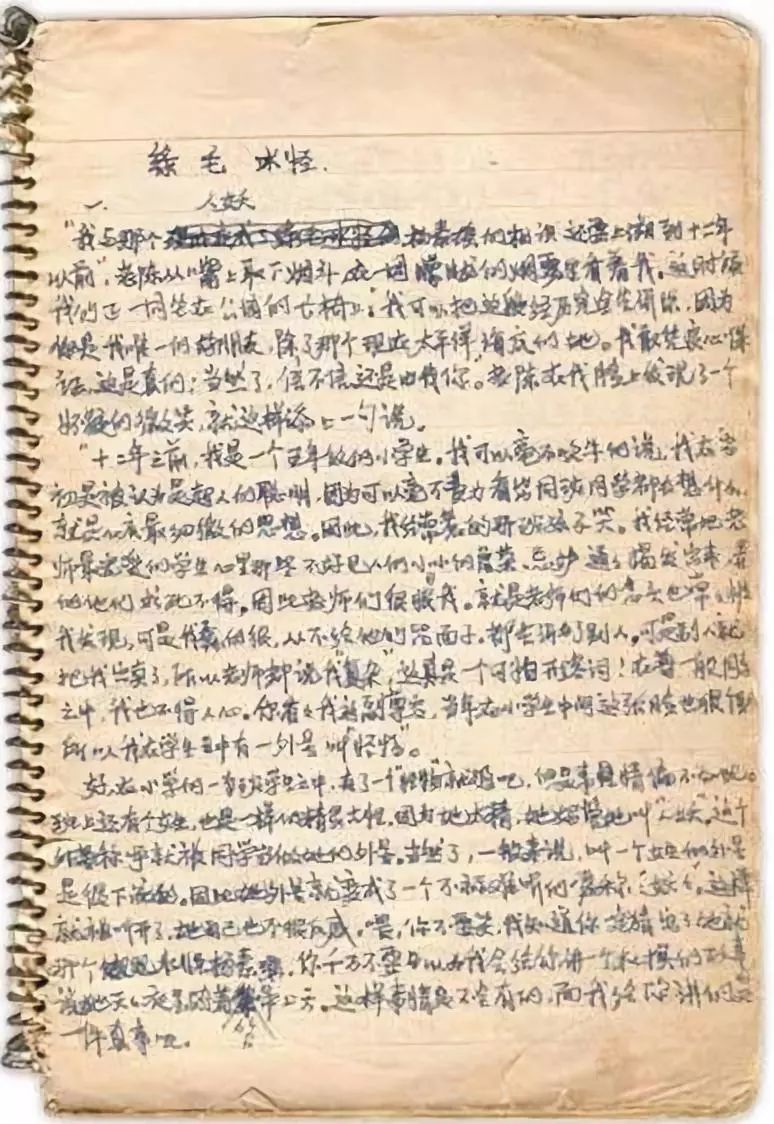 绿毛水怪.
一. 人妖
“我与那个 杨素瑶的相识还要上溯到十二年
以前”,老陈从嘴上取下烟斗,在一团朦胧的烟雾里看着我。这时候
我们正一同坐在公园的长椅上:“我可以把这段经历完全告诉你,因为
你是我唯一的好朋友,除了那个现在太平洋海底的她。我敢凭良心保
证,这是真的;当然了,信不信还是由你”。老陈在我脸上发现了一个
怀疑的微笑,就这样添上一句说。
“十二年之前,我是一个五年级的小学生。我可以毫不吹牛的说,我在当
初是被认为是超人的聪明,因为可以毫不费力看出同班同学都在想什么,
就是心底最细微的思想。因此,我经常 的 班孩子笑。我经常把老
师最 的学生心里那些不好见人们小小的虚荣、忌妒通通揭发出来,
们他们求死不得。因此老师们很恨我。就是老师们的 也常常被
我发现,可是我 的很,从不给他们留面子,都告诉了别人。可是别人就
把我出卖了,所以老师都说我“复杂”,这真是一个可怕形容词!在 一般同学
之中,我也不得人心。你看看我这副尊容,当年在小学生中间这张脸也很
所以我在学生中有一外号叫“怪物”。
好,在小学的一 班学生之中,有了一个“怪物”就够 吧,但是事情偏不如此。
班上还有个女生,也是一样的精灵古怪。因为她太精,她 常地叫“人妖”。这个
称呼就被同学当做她的外号。当然了,一般来说,叫一个女生的外号
是很下流的。因此她外号就变成了一个不 难听的 称“妖妖”。这样
就 叫开了,她自己也不很反感。喂,你不要笑,我知道你 猜出了她就是
那个 水怪杨素瑶。你千万不要以为我会给你讲一个 的故事
说她天天夜里骑着 上天。这样事情是不会有的,而我给你讲的是
一件真事呢。